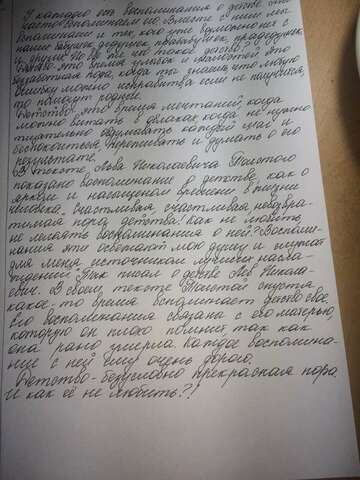 У каждого есть воспоминания о детстве. Мы
часто вспоминаем его, вместе с ним мы
вспоминаем и тех, кого уже возможно нет с
нами: бабушек, дедушек, прабабушек, прадедушек
и других. Но всё же что такое детство?
Детство - это время улыбок и шалостей. Это
беззаботная пора, когда ты знаешь что любую
ошибку можно исправить а если не получится,
то помогут родные.
Детство - это время мечтаний, когда
можно витать в облаках, когда не нужно
тщательно обдумывать каждый шаг и
беспокоиться, переживать и думать о его
результате.
В тексте Льва Николаевича Толстого
показано воспоминание о детстве, как о
ярком и насыщенном времени в жизни
человека. "Счастливая, счастливая, невозвра-
тимая пора детства! Как не любить,
не лелеять воспоминания о ней? Воспоми-
нания эти освежают мою душу и служат
для меня источником лучших насла-
ждений" Так писал о детстве Лев Никола-
евич. В своём тексте Толстой спустя
какое-то время вспоминает детство своё,
его воспоминания связаны с его матерью,
которую он плохо помнит так как
она рано умерла. Каждое воспомина-
ние с ней ему очень дорого.
Детство - безусловно прекрасная пора
и как её не любить?!